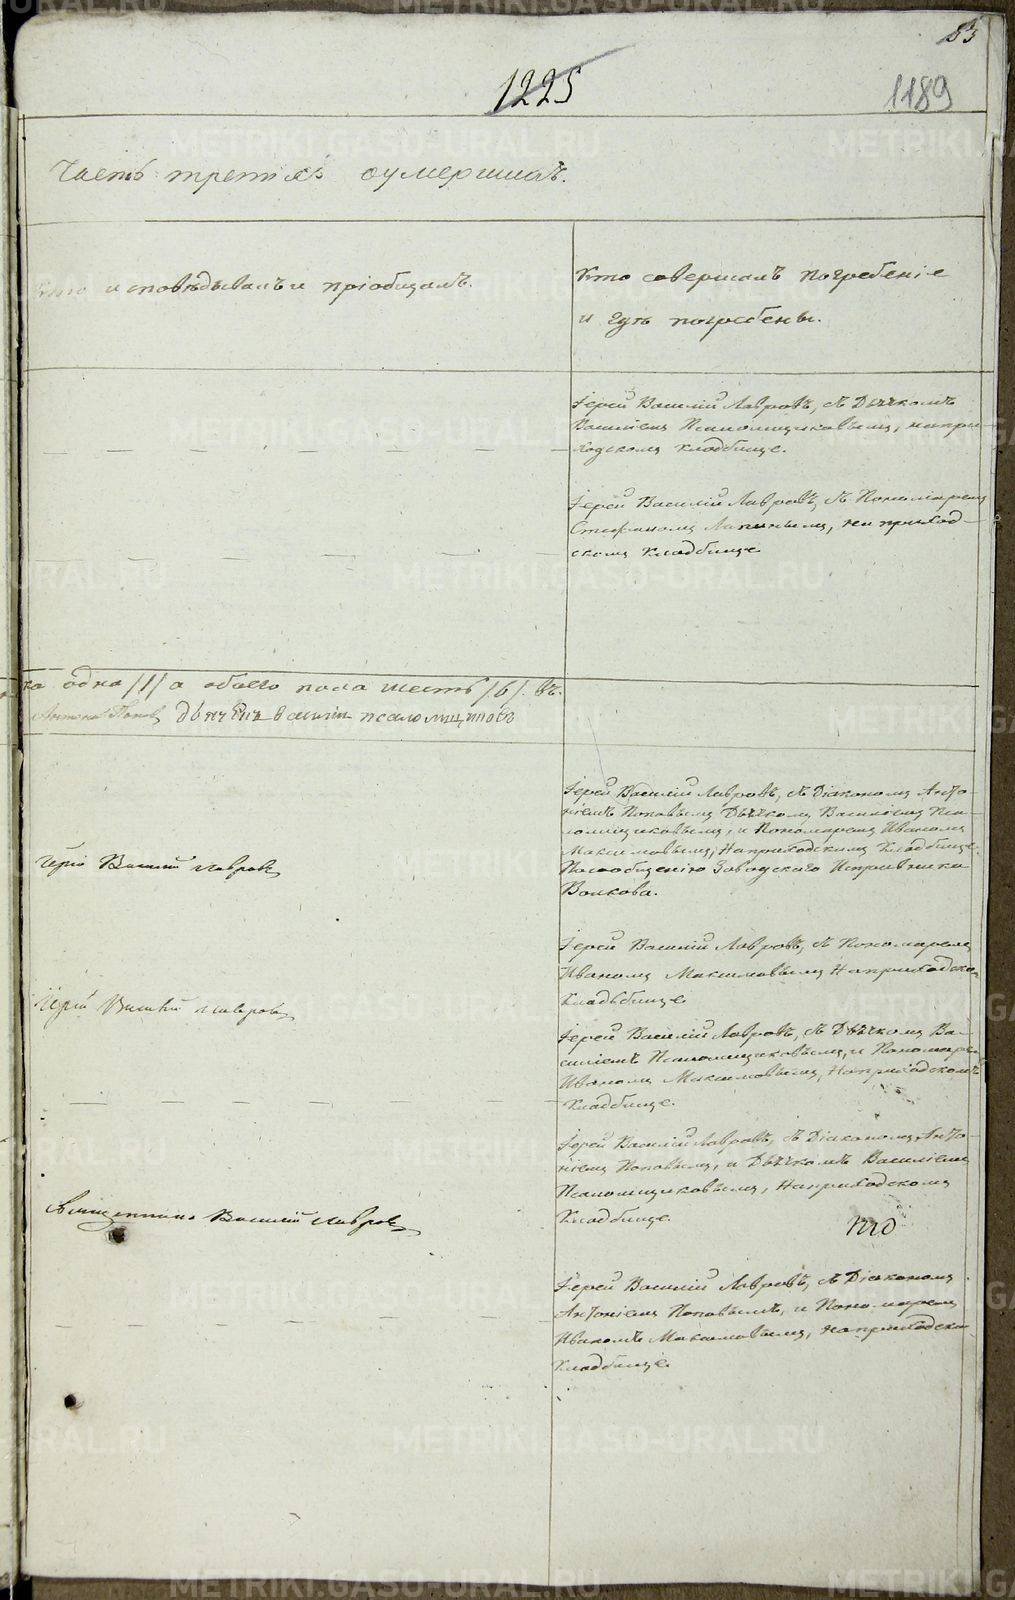 83
1225
1189
Часть третія оумершихъ.
Кто исповѣдывалъ и пріобщалъ.
Кто совершалъ погребеніе
и гдѣ погребены.
Іерей Василій Лавровъ, съ Дьячкомъ
Василіемъ Псаломщиковымъ, на при-
ходскомъ кладбище.
Іерей Василій Лавровъ, съ Пономаремъ
Стефаномъ Лапинымъ, на приход-
скомъ кладбище
одна /1/ а обоего пола шесть /6/.
Антоній Поповъ Дьячекъ Василій псаломщиковъ
Іерей Василій Лавровъ, съ Діакономъ Анто-
ніемъ Поповымъ Дьячкомъ Василіемъ Пса-
ломщиковымъ, и Пономаремъ Иваномъ
Максимовымъ, На приходскомъ кладбище.
По сообщенію Заводского Исправника
Волкова.
Іерей Василій Лавровъ
Іерей Василій Лавровъ, съ Пономаремъ
Иваномъ Максимовымъ На приходско
кладбище
Іерей Василій Лавровъ
Іерей Василій Лавровъ, съ Дьячкомъ Ва-
силіемъ Псаломщиковымъ, и Пономаремъ
Иваномъ Максимовымъ, На приходскомъ
кладбище.
Іерей Василій Лавровъ, съ Діакономъ Анто-
ніемъ Поповымъ, и Дьячкомъ Василіемъ
Псаломщиковымъ, На приходскомъ
Кладбище.
Священникъ Василій Лавровъ
Іерей Василій Лавровъ, съ Діакономъ
Антоніемъ Поповымъ, и Пономаремъ
Иваномъ Максимовымъ, на приходско
кладбище
METRIKI.GASO-URAL.RU